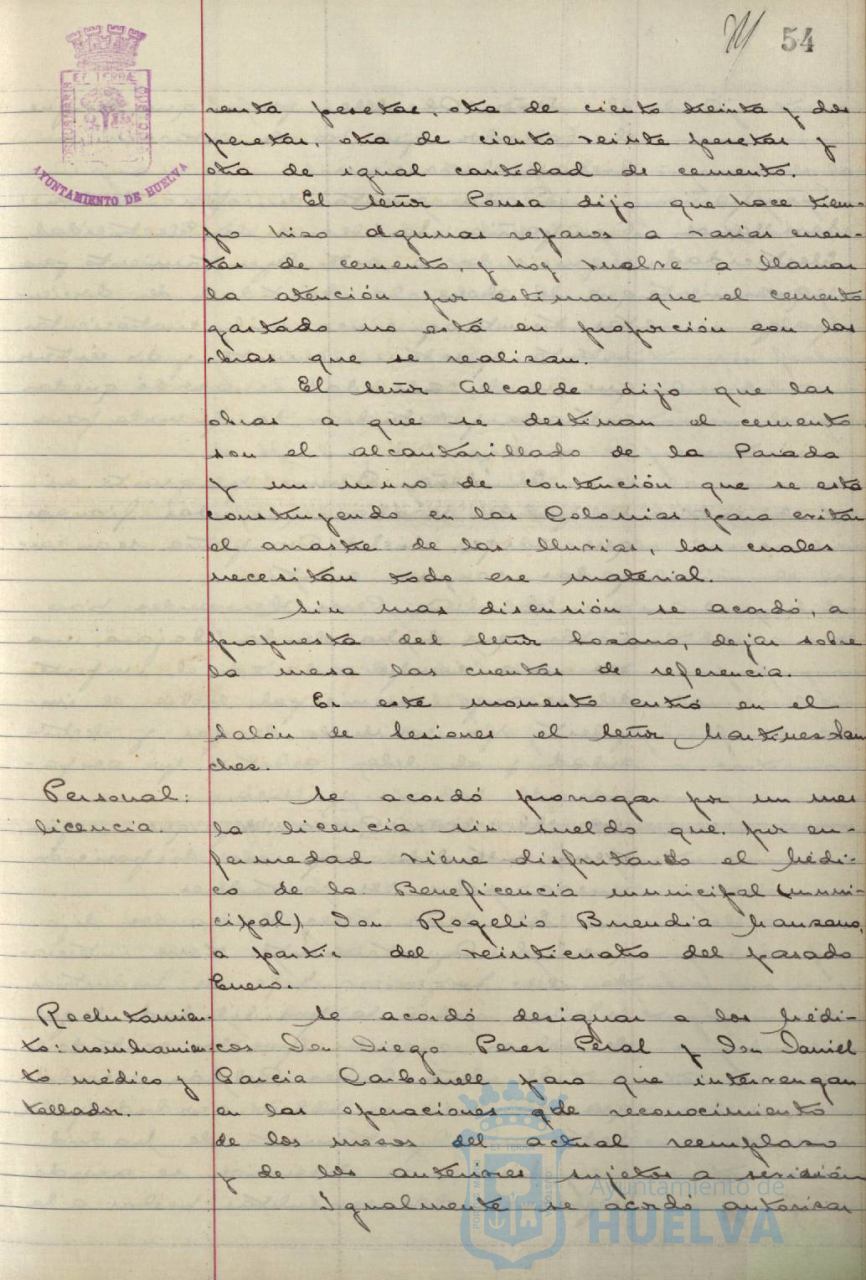 54
AYUNTAMIENTO DE HUELVA
renta pesetas, otra de ciento treinta y dos
pesetas, otra de ciento veinte pesetas y
otra de igual cantidad de cemento.
El Señor Ponsa dijo que hace tiem-
po hizo algunas reparos a varias cuen-
tas de cemento, y hoy vuelve a llamar
la atención por estimar que el cemento
gastado no está en proporción con las
obras que se realizan.
El Señor Alcalde dijo que las
obras a que se destinan el cemento
son el alcantarillado de la Parada
y un muro de contención que se está
construyendo en las Colonias para evitar
el arrastre de las lluvias, las cuales
necesitan todo ese material.
Sin mas discusión se acordó, a
propuesta del Señor Lozano, dejar sobre
la mesa las cuentas de referencia.
En este momento entró en el
Salón de Sesiones el Señor Martinez San
chez.
Personal:
licencia.
Se acordó prorrogar por un mes
la licencia sin sueldo que por en-
fermedad viene disfrutando el Médi-
co de la Beneficencia municipal (muni-
cipal) Don Rogelio Buendia Manzano,
a partir del veinticuatro del pasado
Enero.
Reclutamien-
to: nombramien
to médico y
tallador.
Se acordó designar a los Médi-
cos Don Diego Perez Peral y Don Daniel
Garcia Carbonell para que intervengan
en las operaciones de reconocimiento
de los mozos del actual reemplazo
y de los anteriores sujetos a revisión
Igualmente se acordó autorizar
Ayuntamiento de
HUELVA